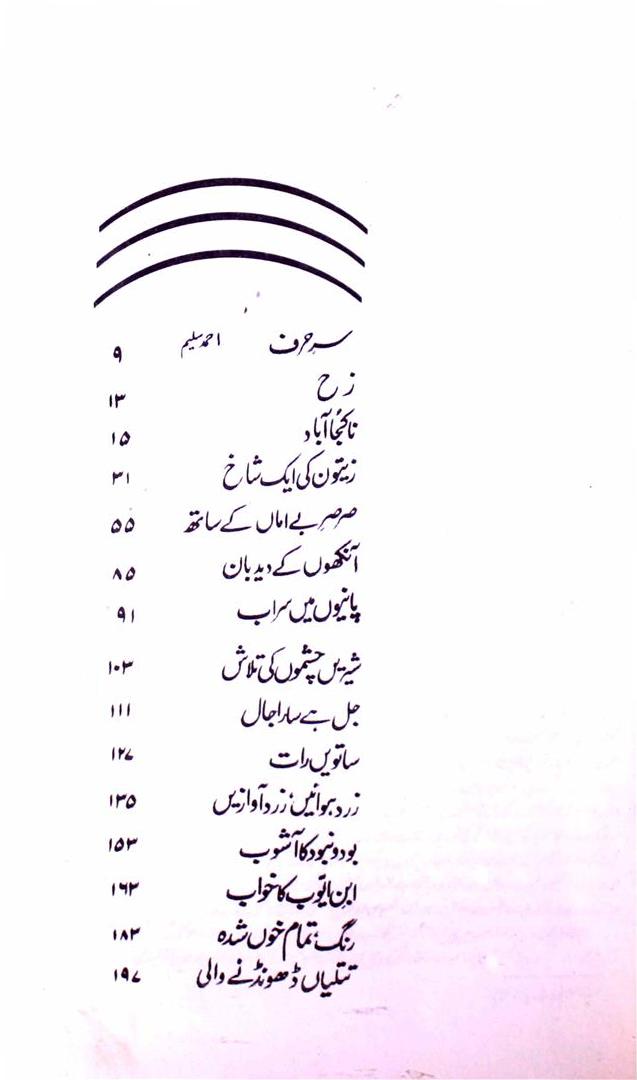 سرِ حرف احمد سلیم ۹
ز ح ۱۳
ناکُجا آباد ۱۵
زیتون کی ایک شاخ ۳۱
صرصرِ بے اماں کے ساتھ ۵۵
آنکھوں کے دیدبان ۸۵
پانیوں میں سراب ۹۱
شیریں چشموں کی تلاش ۱۰۳
جل ہے سارا جال ۱۱۱
ساتویں رات ۱۲۷
زرد ہوائیں، زرد آوازیں ۱۳۵
بود و نبود کا آشوب ۱۵۳
ابنِ ایّوب کا خواب ۱۶۳
رنگ، تمام خوں شدہ ۱۸۳
تتلیاں ڈھونڈنے والی ۱۹۷